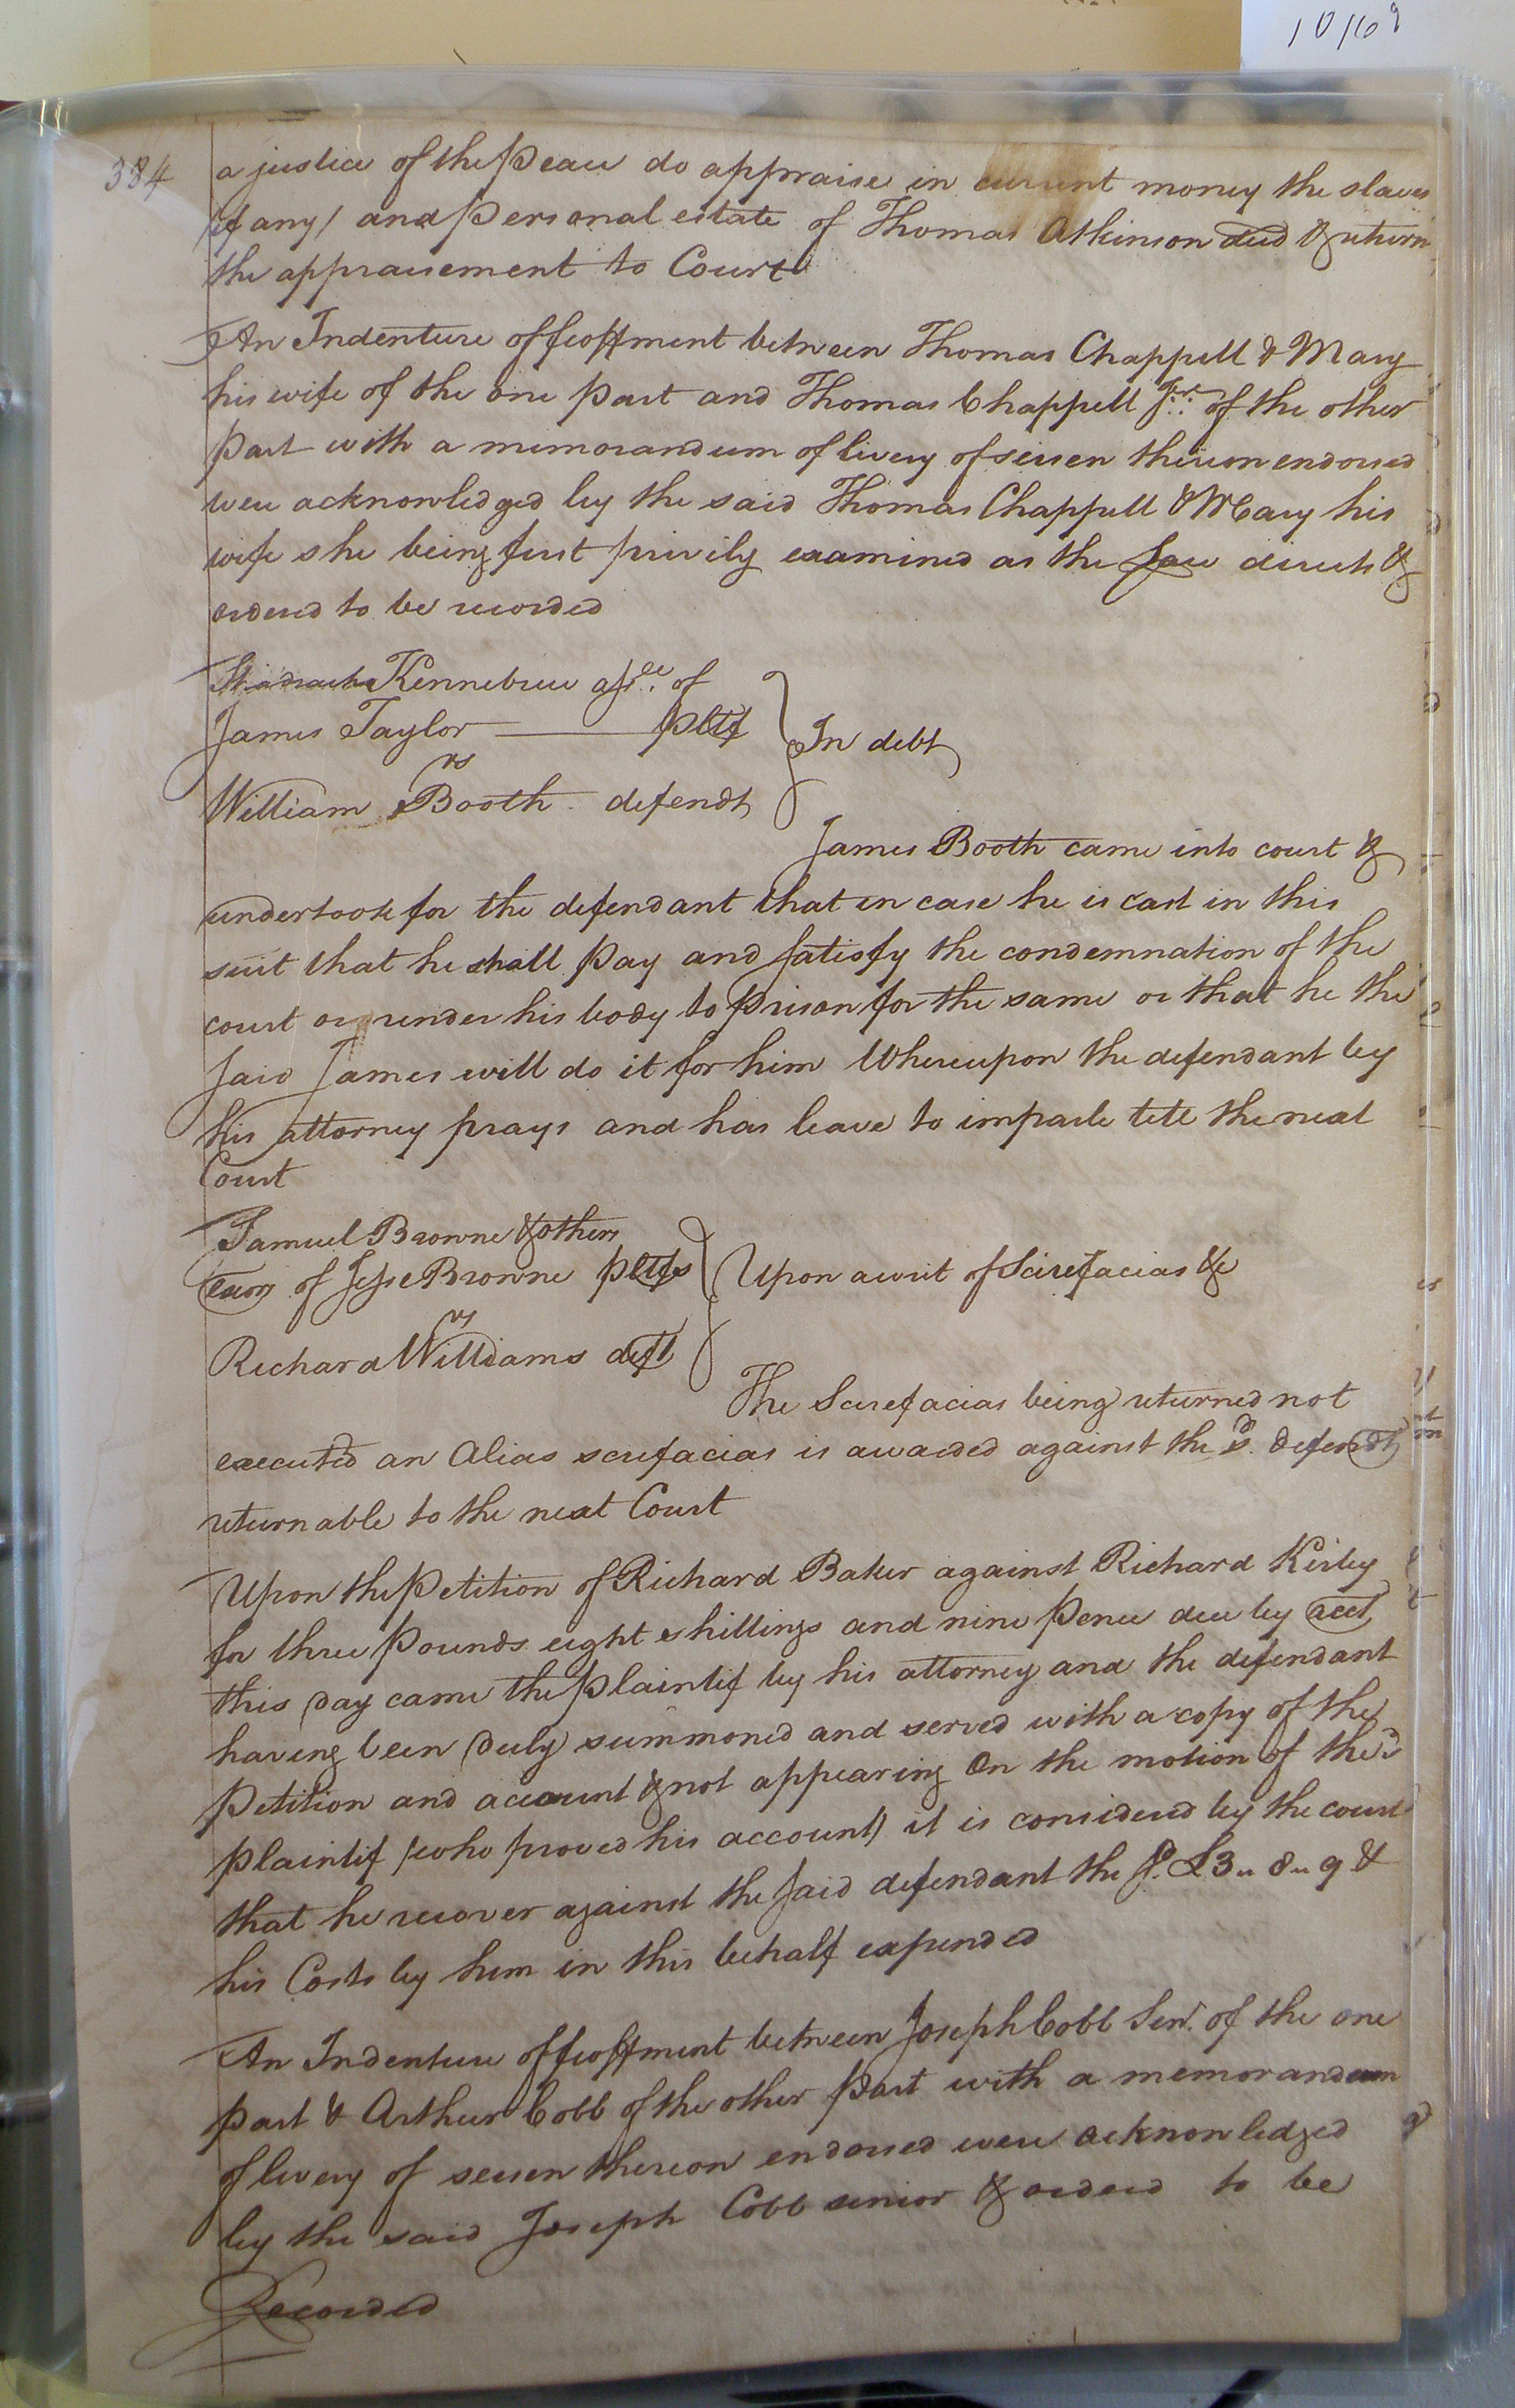 10/69
384
a justice of the Peace do appraise in current money the slaves
/if any/ and Personal estate of Thomas Atkinson decd & return
the appraisement to Court
An Indenture of feoffment between Thomas Chappell & Mary
his wife of the one part and Thomas Chappell Jr. of the other
Part with a memorandum of livery of seisen thereon endorsed
were acknowledged by the said Thomas Chappell & Mary his
wife she being first privily examined as the Law directs &
ordered to be recorded
Shadrach Kennebrew assee. of
James Taylor Pltf
vs
In debt
William Booth defendt
James Booth came into court &
undertook for the defendant that in case he is cast in this
suit that he shall Pay and satisfy the condemnation of the
court or render his body to Prison for the same or that he the
said James will do it for him Whereupon the defendant by
his attorney prays and has leave to imparle till the next
Court
Samuel Browne & others
Exors of Jesse Browne Pltfs
Upon a writ of Scirefacias &c
vs
Richard Williams deft
The Scirefacias being returned not
executed an Alias scirefacias is awarded against the sd. defendt
returnable to the next Court
Upon the Petition of Richard Baker against Richard Kirby
for three Pounds eight shillings and nine Pence due by acct
this day came the Plaintif by his attorney and the defendant
having been duly summoned and served with a copy of the
Petition and account & not appearing On the motion of the
Plaintif /who proved his account/ it is considered by the court
that he recover against the said defendant the sd. £3 " 8 " 9 &
his Costs by him in this behalf expended
An Indenture of feoffment between Joseph Cobb Senr. of the one
part & Arthur Cobb of the other Part with a memorandum
of livery of seisen thereon endorsed were acknowledged
by the said Joseph Cobb senior & ordered to be
Recorded